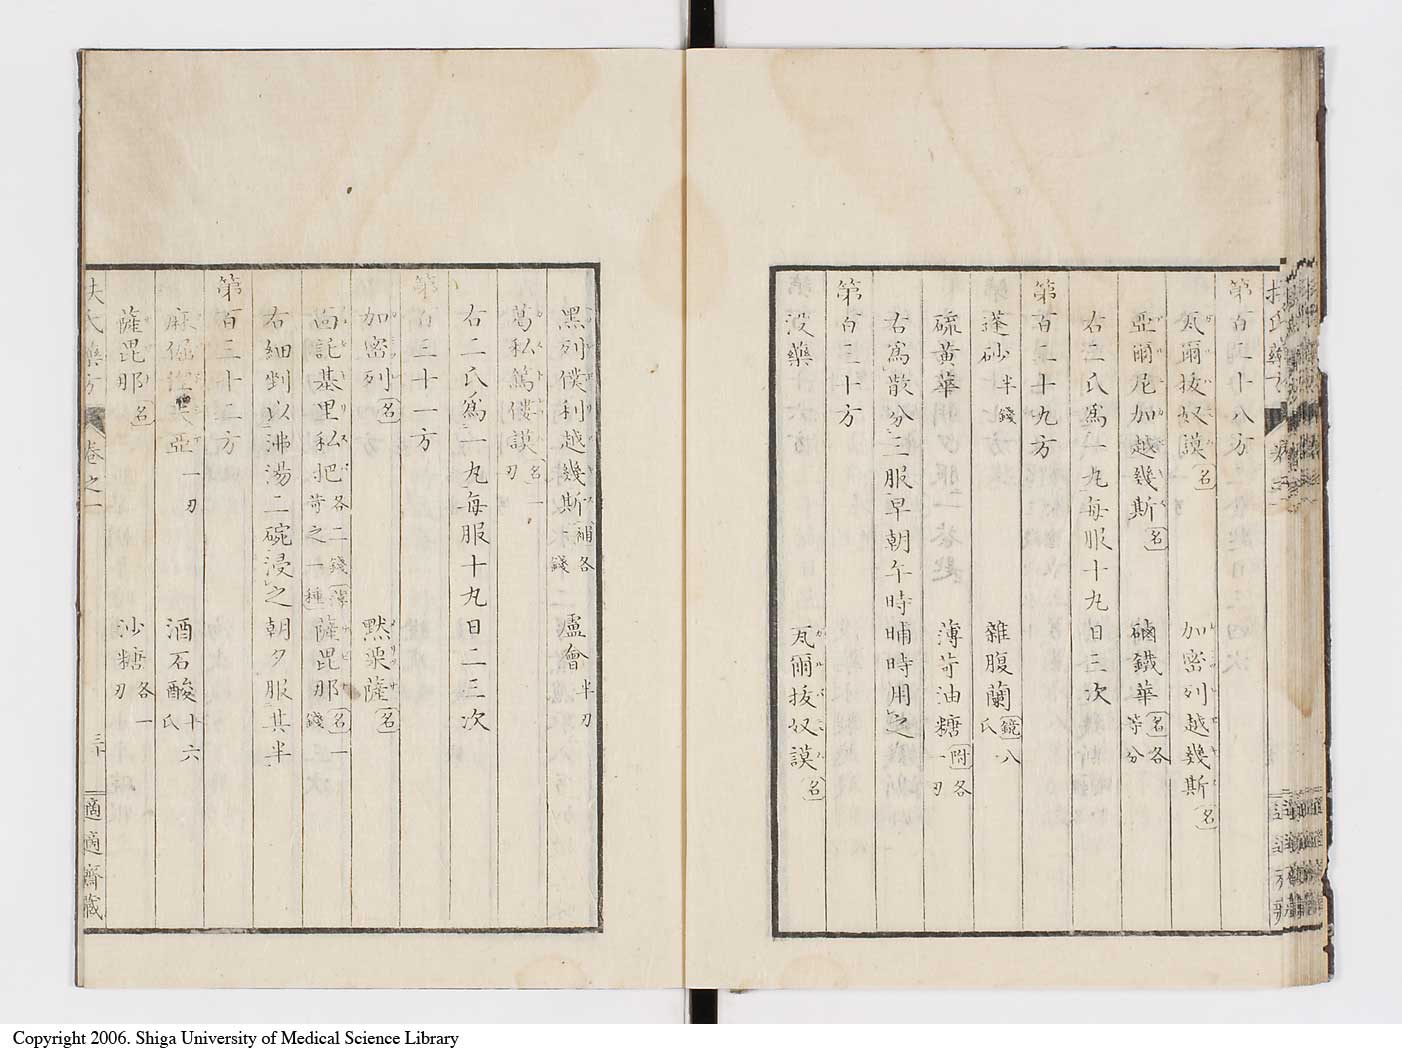 第百二十八方
瓦爾抜奴謨 名 加密列越幾斯 名
亞爾尼加越幾斯 名 磠鐵華 名 各等分
右二氏為一丸每服十九日三次
第百二十九方
蓬砂 半錢 雜腹蘭 鏡 八氏
硫黄華 薄荷油糖 附 各一刃
右為散分三服早朝午時晡時用之
第百三十方
没藥 瓦爾抜奴謨 名
黑列僕利越幾斯 補 各錢 蘆會 半刃
葛私篤僂謨 名 一刃
右二氏為一丸每服十九日二三次
第百三十一方
加密列 名 默栗薩 名
百設基里私把 各二錢 薄荷之一種 薩毘那 名 一錢
右細剉以沸湯二碗浸之朝夕服其半
第百三十二方
麻倔涅失亞 一刃 酒石酸 十六氏
薩毘那 名 沙糖 各一刃
扶氏藥方 卷之一 三十 適適齋藏
Copyright 2006. Shiga University of Medical Science Library